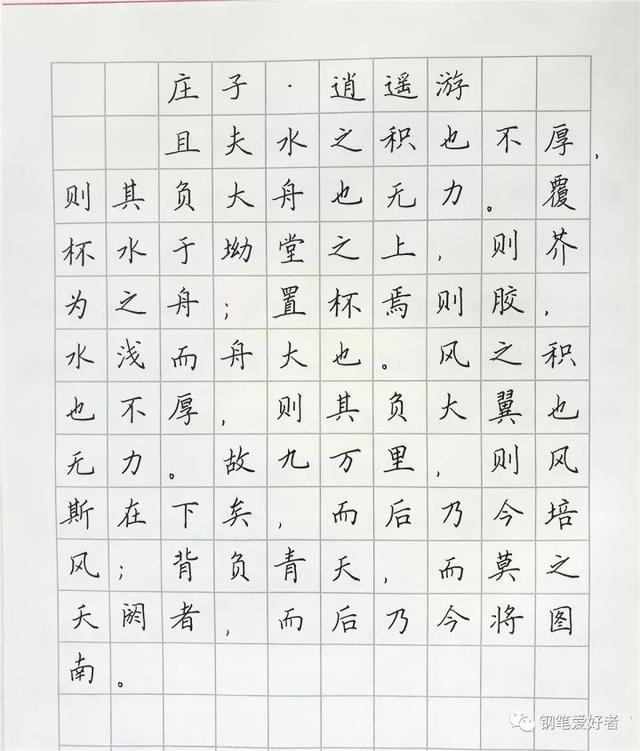 庄子·逍遥游
且夫水之积也不厚，
则其负大舟也无力。覆
杯水于坳堂之上，则芥
为之舟；置杯焉则胶，
水浅而舟大也。风之积
也不厚，则其负大翼也
无力。故九万里，则风
斯在下矣，而后乃今培
风；背负青天，而莫之
夭阏者，而后乃今将图
南。
钢笔爱好者